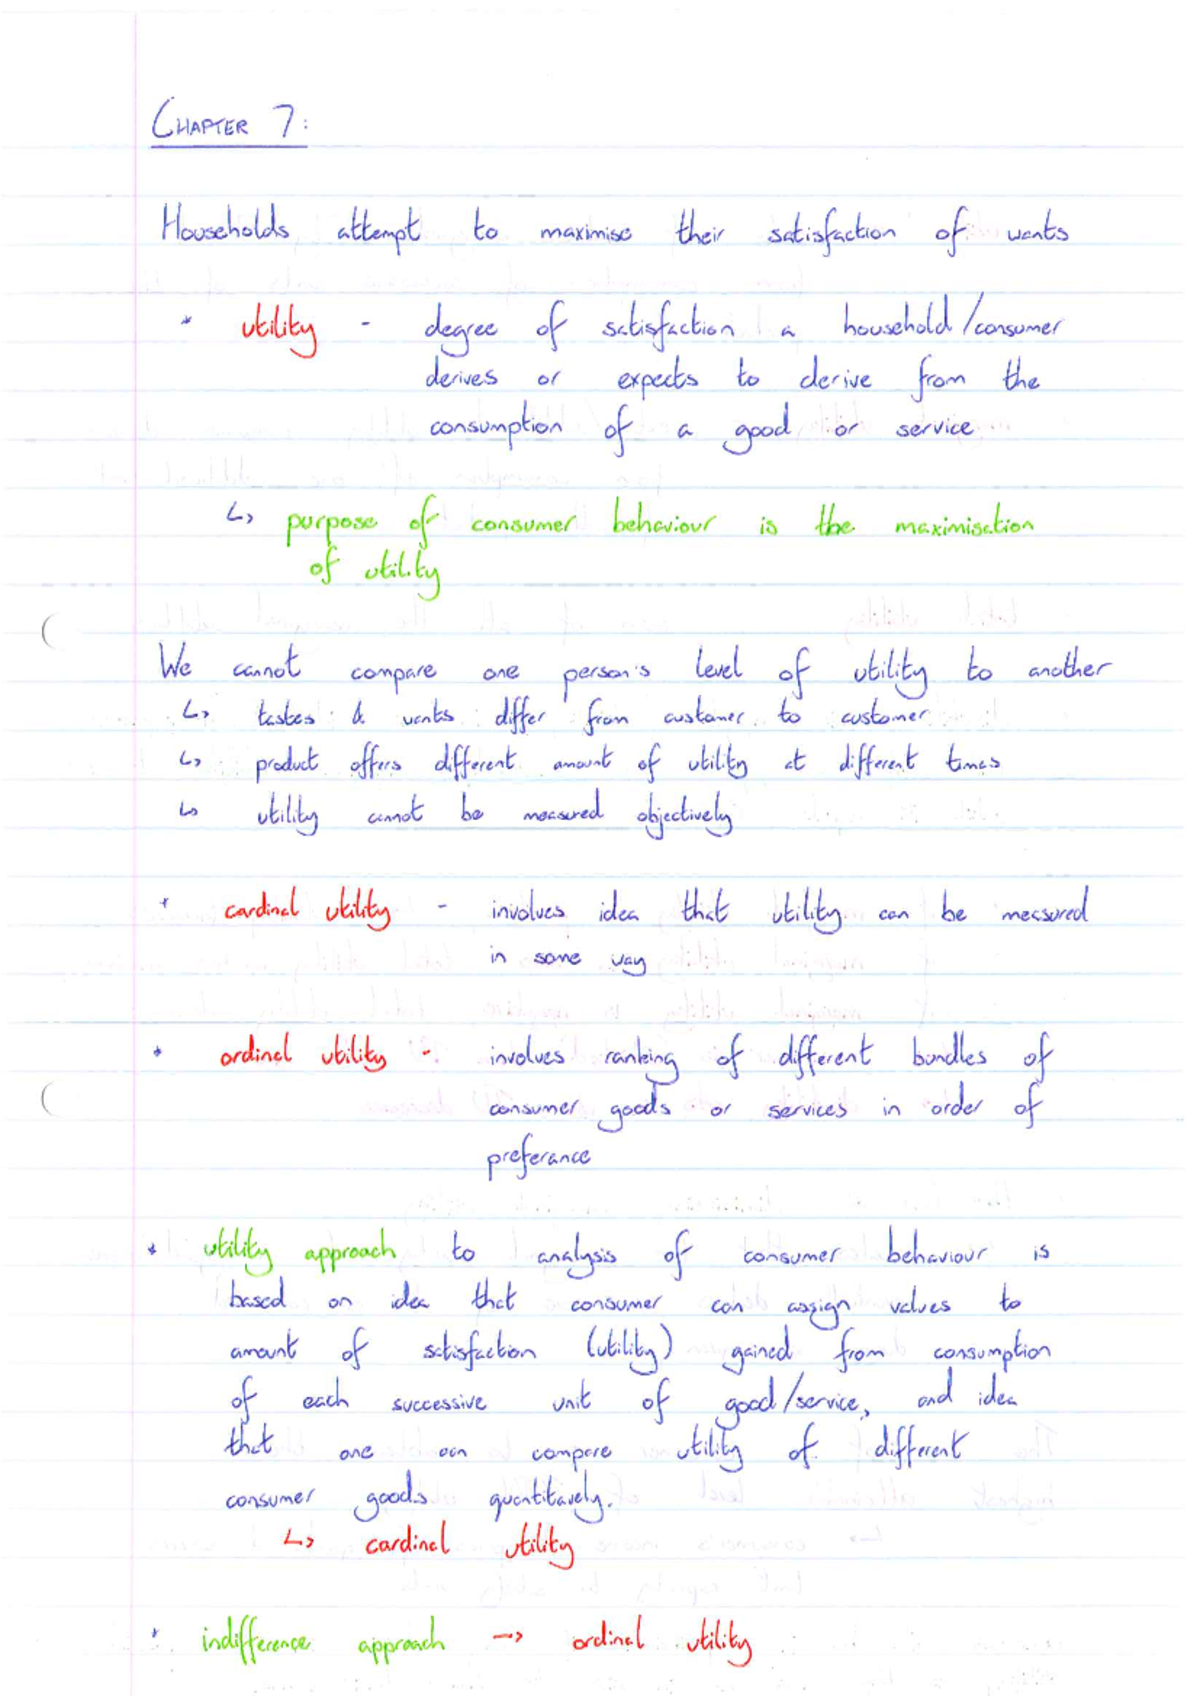 CHAPTER 7:
Households attempt to maximise their satisfaction of wants
* utility - degree of satisfaction a household/consumer
derives or expects to derive from the
consumption of a good or service
↳ purpose of consumer behaviour is the maximisation
of utility
We cannot compare one person's level of utility to another
↳ tastes & wants differ from customer to customer
↳ product offers different amount of utility at different times
↳ utility cannot be measured objectively
* cardinal utility - involves idea that utility can be measured
in some way
* ordinal utility - involves ranking of different bundles of
consumer goods or services in order of
preferance
* utility approach to analysis of consumer behaviour is
based on idea that consumer can assign values to
amount of satisfaction (utility) gained from consumption
of each successive unit of good/service, and idea
that one can compare utility of different
consumer goods quantitavely.
↳ cardinal utility
* indifference approach → ordinal utility